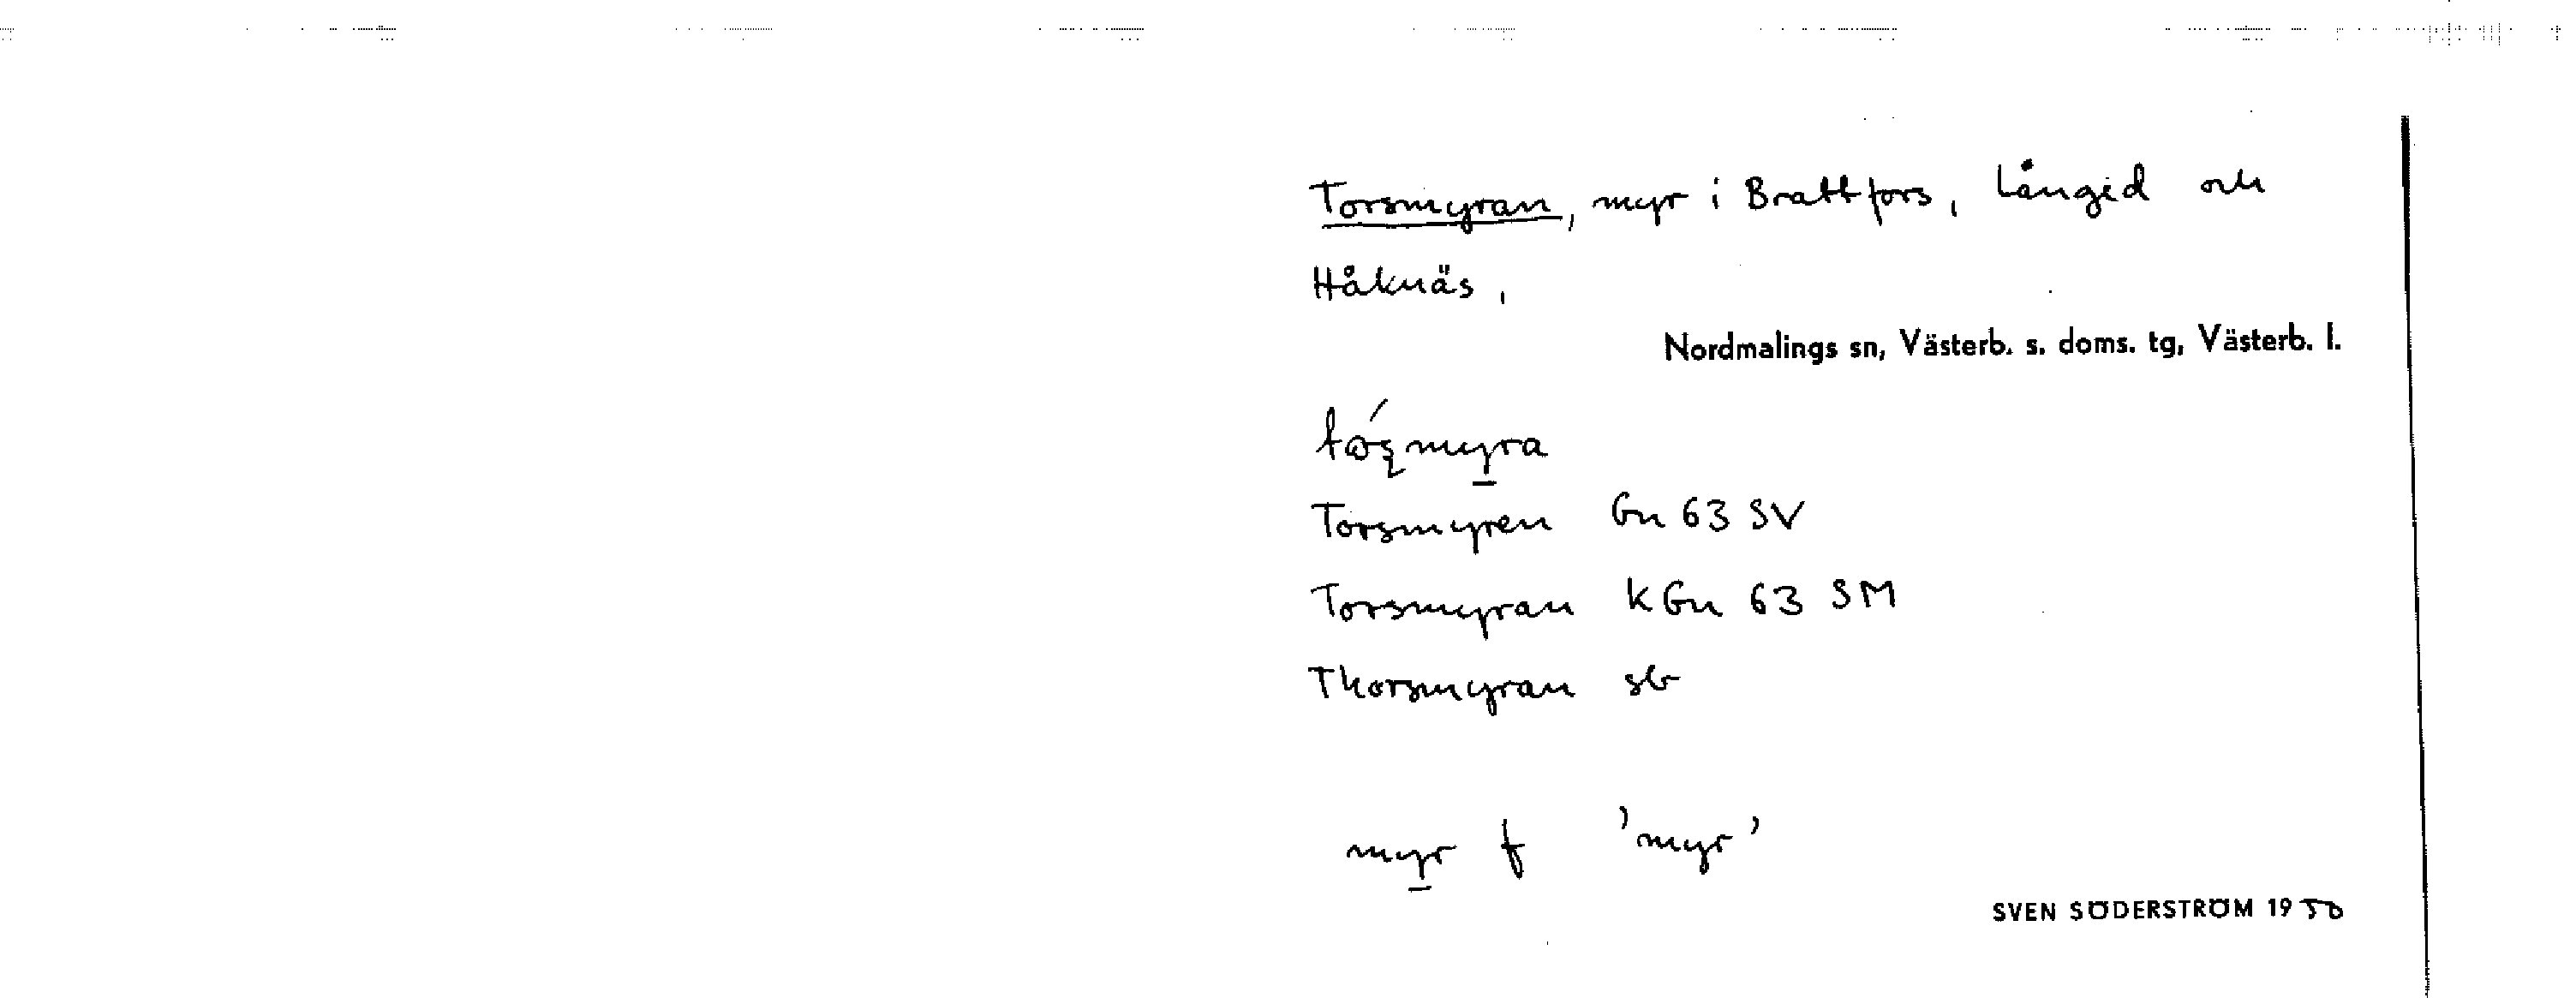 Torsmyran, myr i Brattfors, Långed och
Håknäs,
Nordmalings sn, Västerb. s. doms. tg, Västerb. l.
Torsmyren Gn 63 SV
Torsmyran KGn 63 SM
Thorsmyran sb
myr f 'myr'
SVEN SÖDERSTRÖM 1950